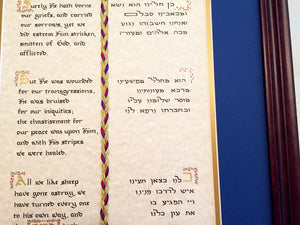 Surely He hath borne
our griefs, and carried
our sorrows, yet we
did esteem Him stricken,
smitten of God, and
afflicted.
But He was wounded
for our transgressions,
He was bruised
for our iniquities;
the chastisement for
our peace was upon Him,
and with His stripes
we were healed.
All we like sheep
have gone astray, we
have turned every one
to his own way, and
כן חלינו הוא נשא
ומכאבינו סבלם
ואנחנו חשבנהו נגוע
מכה אלהים ומענה
והוא מחלל מפשעינו
מדכא מעונותינו
מוסר שלומנו עליו
ובחברתו נרפא לנו
כלנו כצאן תעינו
איש לדרכו פנינו
ויי הפגיע בו
את עון כלנו